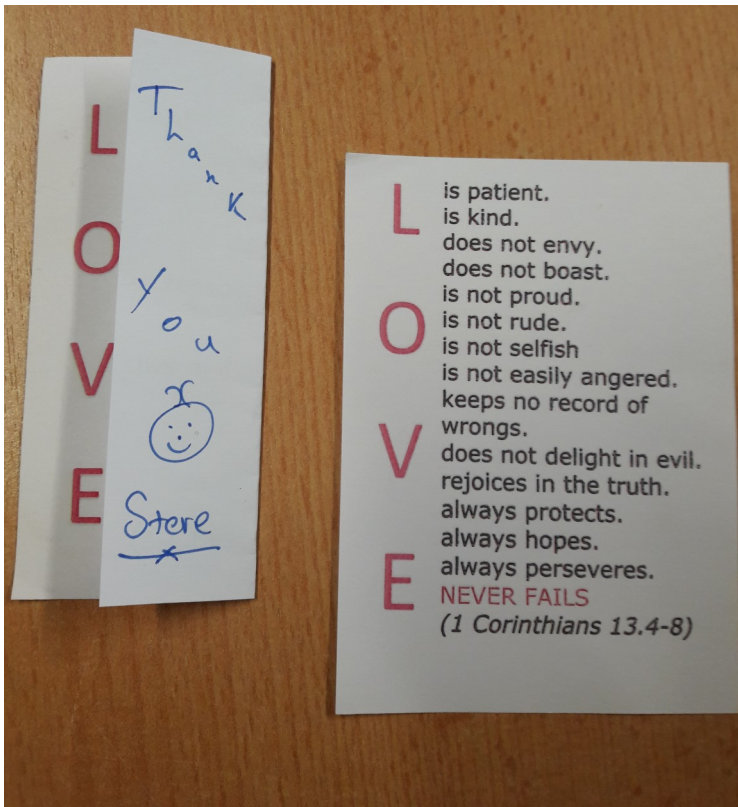 L
O
V
E
Thank
You
Steve
L
O
V
E
is patient.
is kind.
does not envy.
does not boast.
is not proud.
is not rude.
is not selfish
is not easily angered.
keeps no record of
wrongs.
does not delight in evil.
rejoices in the truth.
always protects.
always hopes.
always perseveres.
NEVER FAILS
(1 Corinthians 13.4-8)